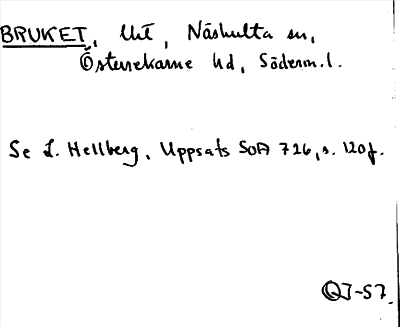 BRUKET, Utt, Näshulta sn,
Österrekarne hd, Söderm.l.
Se L. Hellberg, Uppsats SOA 726, s. 120f.
QJ-57.